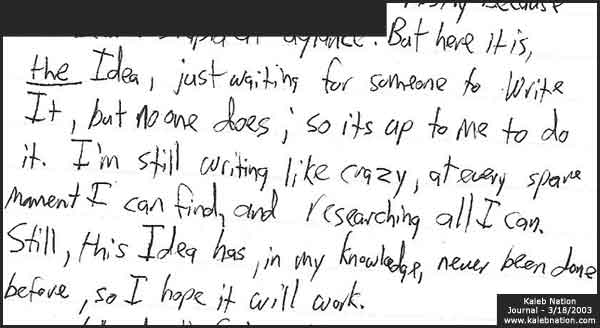 because
But here it is,
the Idea, just waiting for someone to write
It, but no one does; so its up to me to do
it. I'm still writing like crazy, at every spare
moment I can find, and researching all I can.
Still, this Idea has, in my knowledge, never been done
before, so I hope it will work.
Kaleb Nation
Journal - 3/18/2003
www.kalebnation.com